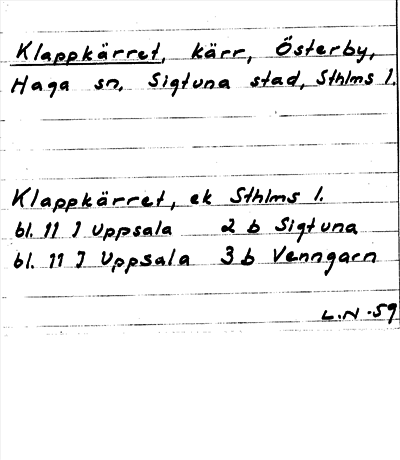 Klappkärret, kärr, Österby,
Haga sn. Sigtuna stad, Sthlms l.
Klappkärret, ek Sthlms l.
bl. 11 I Uppsala 2 b Sigtuna
bl. 11 I Uppsala 3 b Venngarn
L.N -59